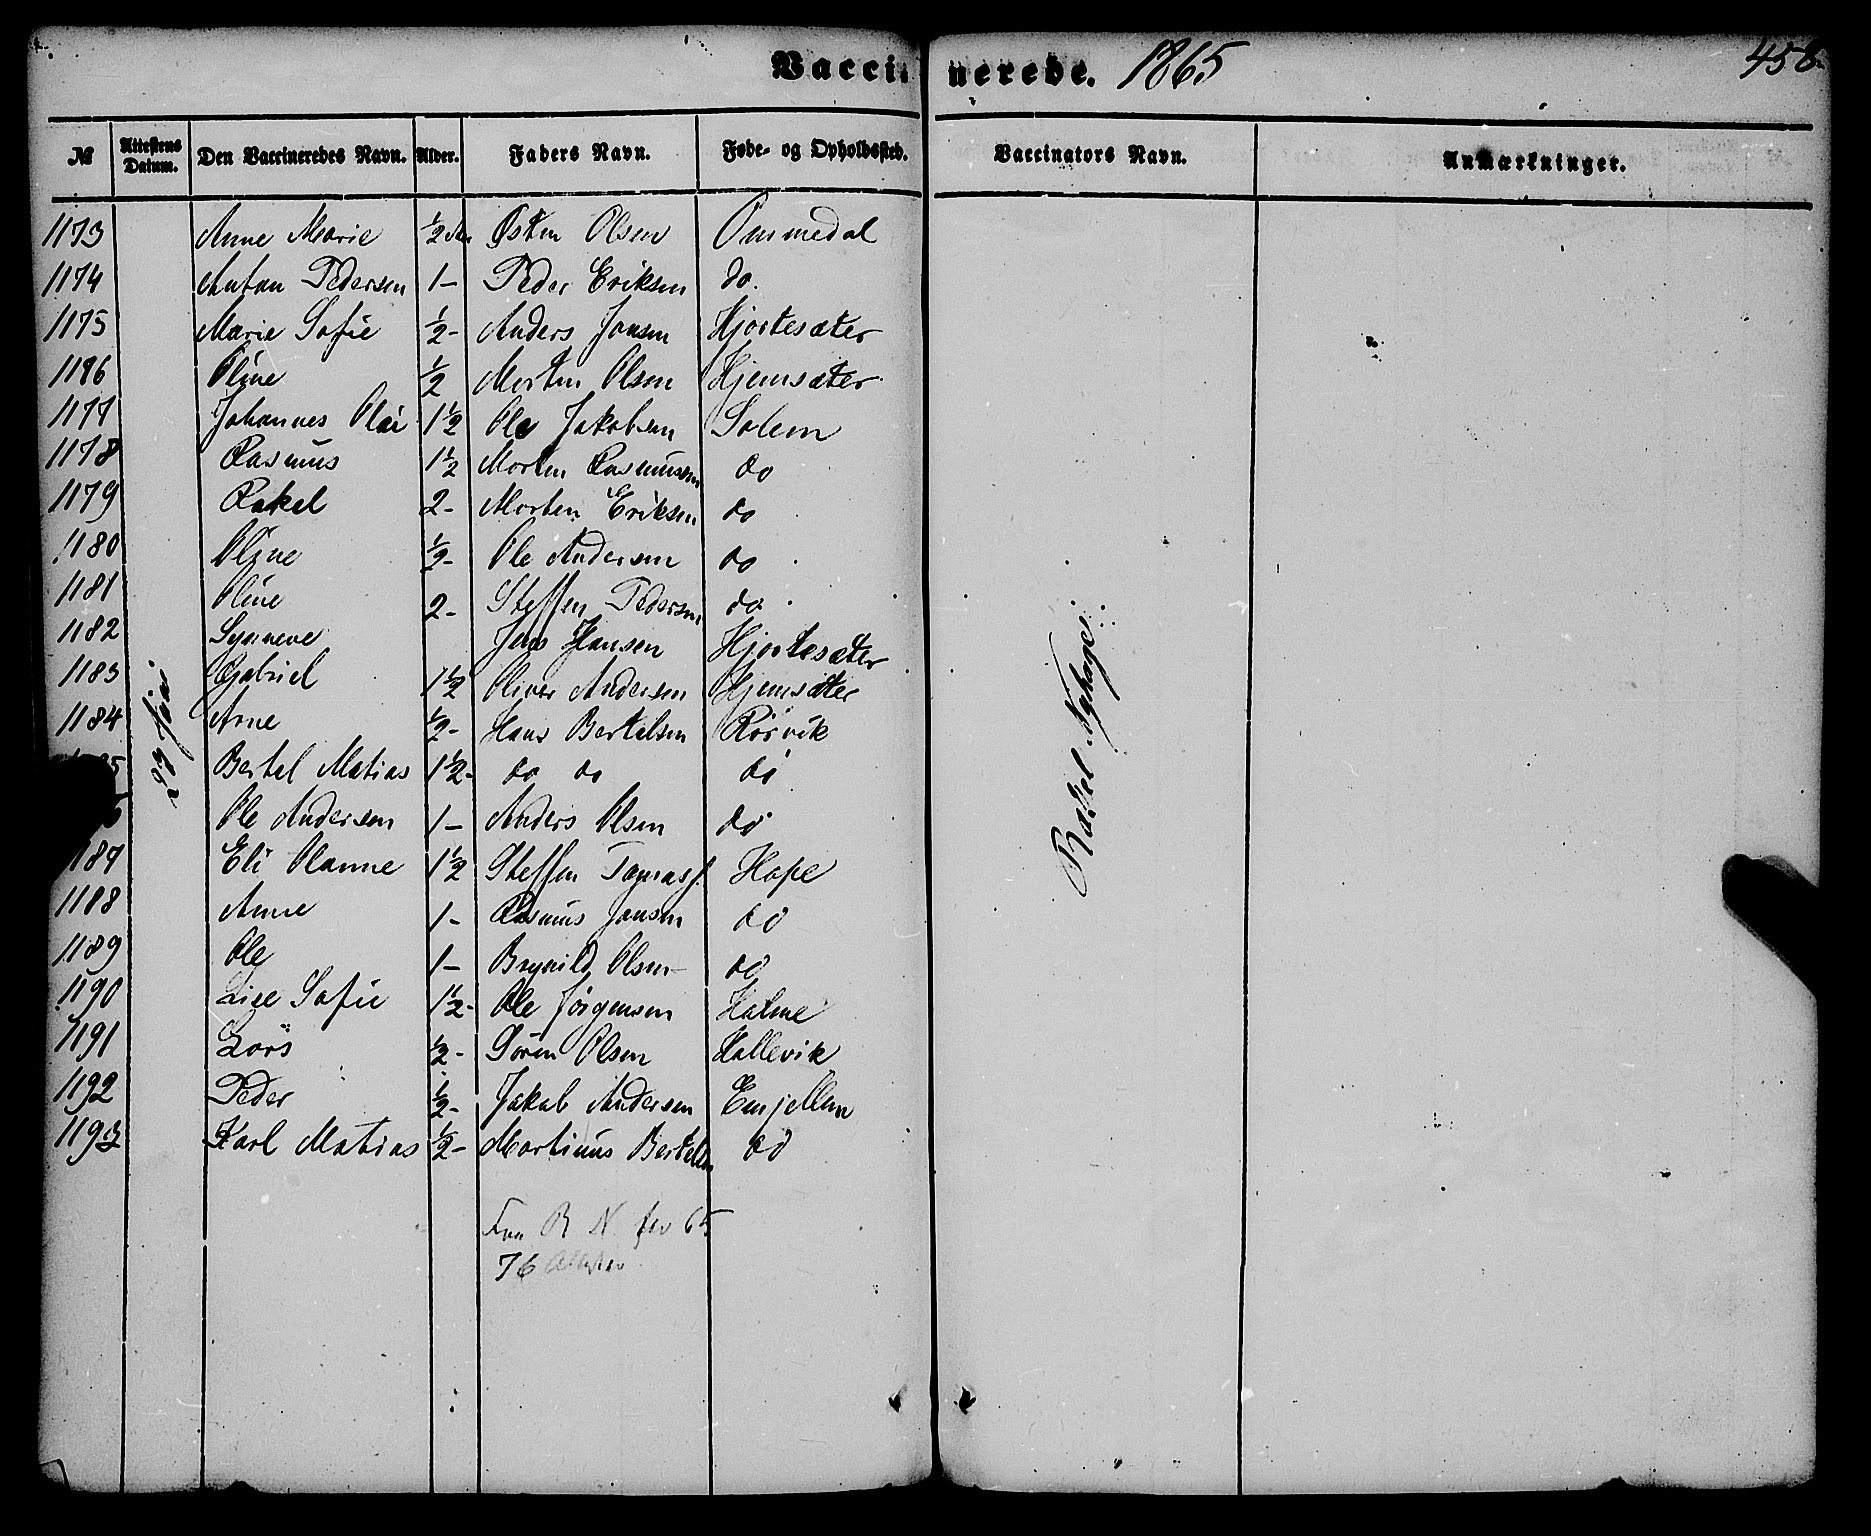 Vaccinerede. 1865 458.
№ Attestens Datum. Den Vaccineredes Navn. Alder. Faders Navn. Føde- og Opholdssted. Vaccinators Navn. Anmærkninger.
1173 Anne Marie ½ Østen Olsen Ommedal
1174 Anton Pedersen 1– Peder Eriksen do.
1175 Marie Sofie ½- Anders Jonsen Hjortesæter
1176 Oline ½ Morten Olsen Hjemsæter
1177 Johannes Olai 1½ Ole Jakobsen Solem
1178 Rasmus 1½ Morten Rasmussen do
1179 Rakel 2- Morten Eriksen do
1180 Oline ½- Ole Andersen do
1181 Oline 2- Steffen Pedersen do
1182 Synneve Jens Hansen Hjortesæter
1183 Gabriel 1½ Oliver Andersen Hjemsæter
1184 Arne ½- Hans Bertelsen Rørvik
Bertel Matias 1½- do do do
Ole Andersen 1– Anders Olsen do
1187 Eli Oanne 1½ Steffen Tomass. Hope
1188 Anne 1- Rasmus Jonsen do
1189 Ole 1– Brynild Olsen do
1190 Lise Sofie 1½- Ole Jørgensen Holme
1191 Lars ½- Søren Olsen Hallevik
1192 Peder ½- Jakob Andersen Emjellem
1193 Karl Matias ½- Martinus Bertelsen do
Rakel Nyhage
Fra R N for 65
76